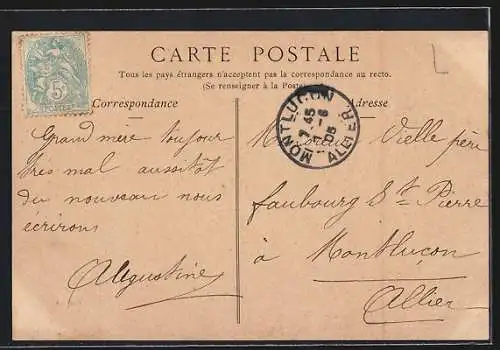 CARTE POSTALE
Tous les pays étrangers n'acceptent pas la correspondance au recto.
(Se renseigner à la Poste)
Correspondance
Adresse
5
MONTLUÇON
7-45
ALLIER
Grand mère toujour
très mal aussitot
du nouveau nous
écrirons
Augustine
Vielle père
faubourg St Pierre
à Montluçon
Allier
L